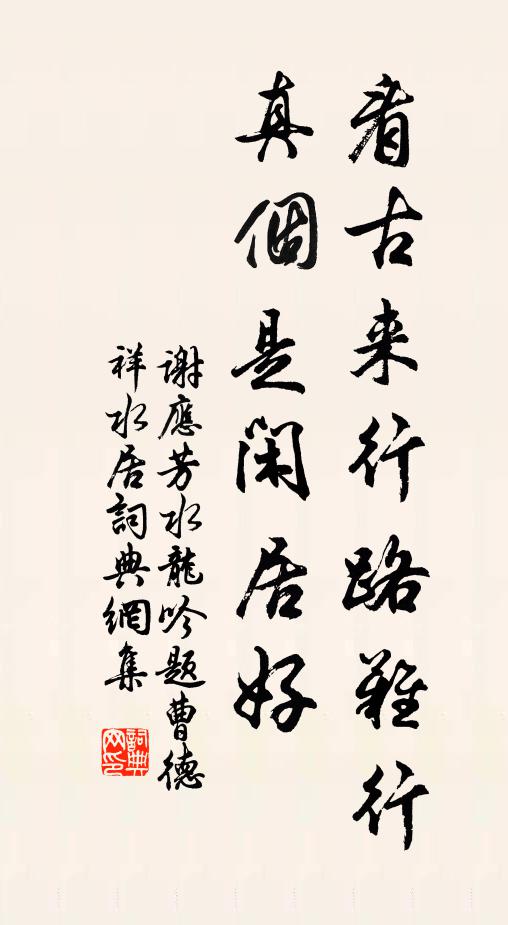 看古来行路難行
真個是閑居好
謝應芳水龍吟題曹德
祥水居詞典網集
詞典网印